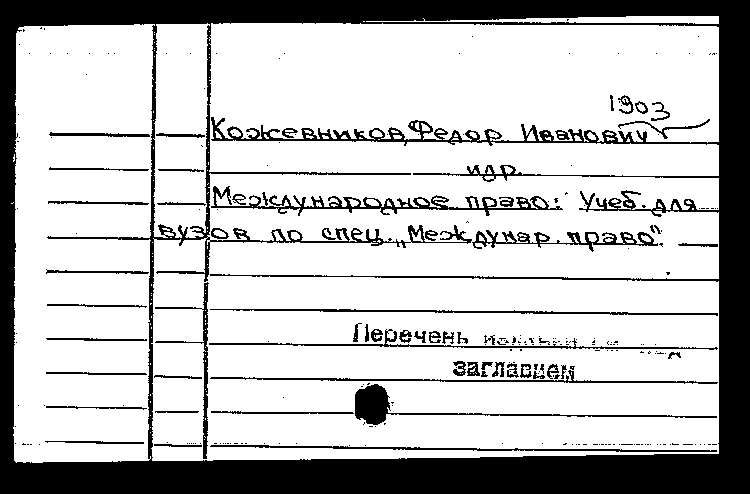 1903
Кожевников, Федор Иванович
и др.
Международное право: Учеб. для
вузов по спец. „Междунар. право".
Перечень
заглавием